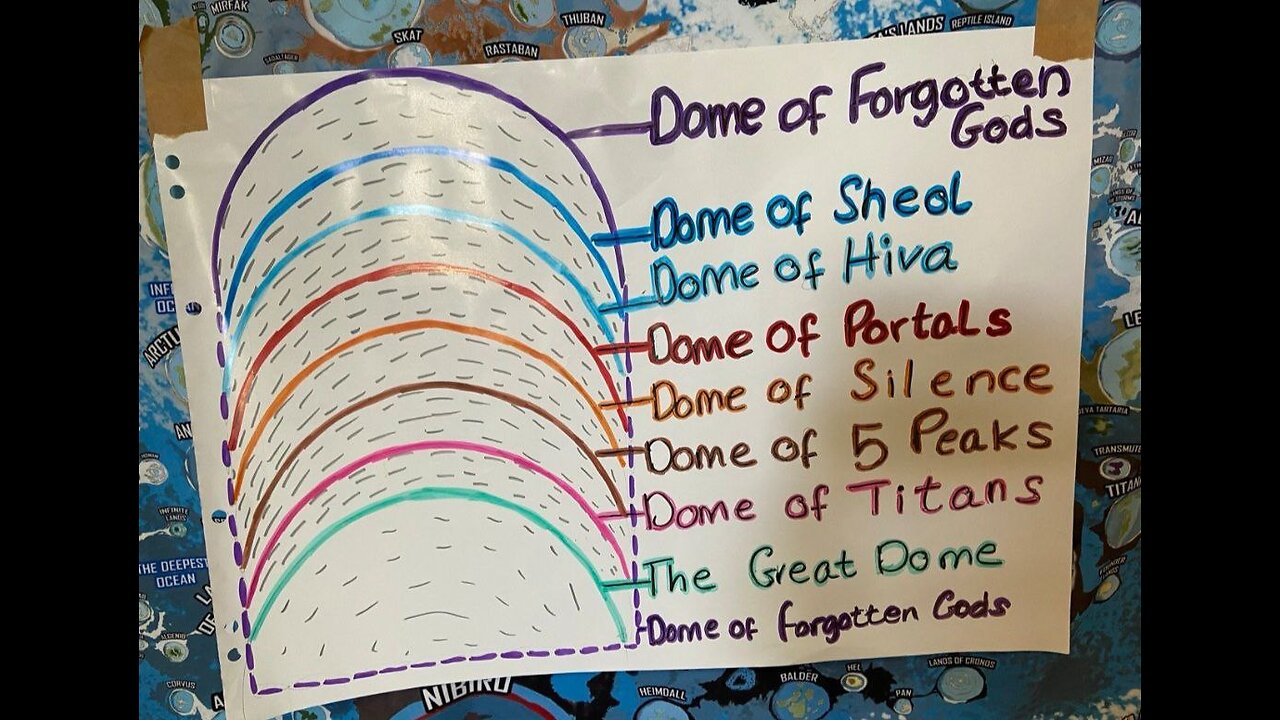 MIRFAK
SKAT
THUBAN
RASTABAN
LANDS
REPTILE ISLAND
Dome of Forgotten
Gods
Dome of Sheol
Dome of Hiva
Dome of Portals
Dome of Silence
Dome of 5 Peaks
Dome of Titans
The Great Dome
Dome of Forgotten Gods
INFINITE
LANDS
THE DEEPEST
OCEAN
CORVUS
NIBIRU
HEIMDALL
BALDER
HEL
PAN
LANDS OF CRONOS